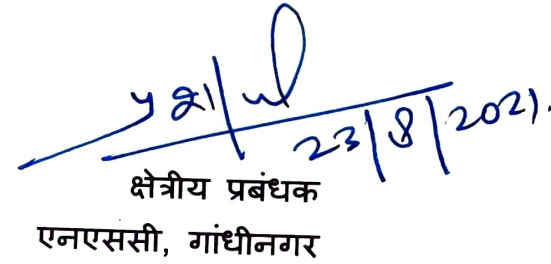 23/8/2021.
क्षेत्रीय प्रबंधक
एनएससी, गांधीनगर